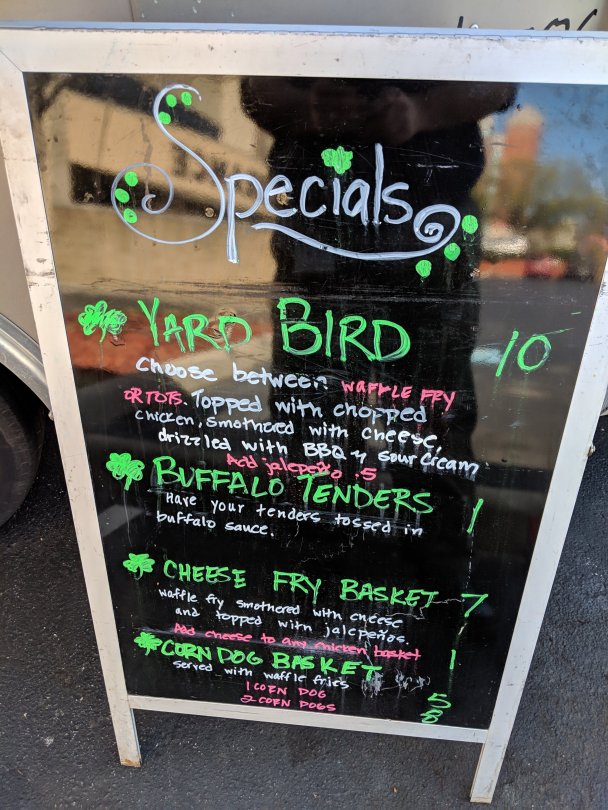 Specials
YARD BIRD 10
Choose between WAFFLE FRY
OR TOTS. Topped with chopped
chicken, smothered with cheese,
drizzled with BBQ n sour cream
Add jalepeño .5
BUFFALO TENDERS 1
Have your tenders tossed in
buffalo sauce.
CHEESE FRY BASKET 7
waffle fry smothered with cheese
and topped with jalepeños.
Add cheese to any chicken basket 1
CORN DOG BASKET
served with waffle fries
1 CORN DOG 5
2 CORN DOGS 8